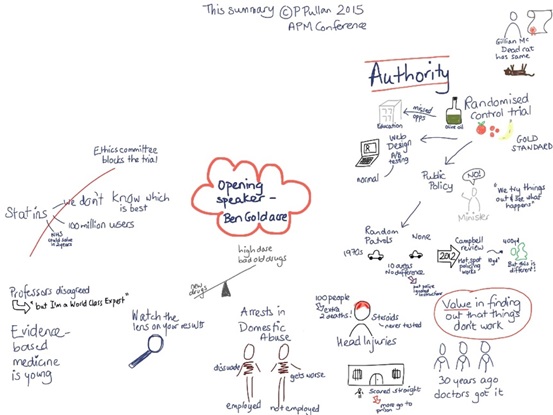 This summary © P Pullan 2015
APM Conference
Gillian Mc
Dead rat
has same
Authority
Randomised
control trial
GOLD
STANDARD
olive oil
missed
opps
Education
Web
Design
A/B
testing
normal
Public
Policy
NO!
Minister
"We try things
out & see what
happens"
Random
Patrols
None
1970s
10 areas
No difference
2012
Campbell
review
hot spot
policing
works
But this is
different!
Ethics committee
blocks the trial
Statins
we don't know which
is best
100 million users
Opening
speaker -
Ben Goldacre
high dose
bad old drugs
new
drugs
Professors disagreed
"but I'm a World Class Expert"
Evidence-
based
medicine
is young
Watch the
lens on your results
Arrests in
Domestic
Abuse
dissuade
gets worse
employed
not employed
100 people
extra
2 deaths!
Steroids
never tested
Head Injuries
Scared straight
more go to
prison
Value in finding
out that things
don't work
30 years ago
doctors got it